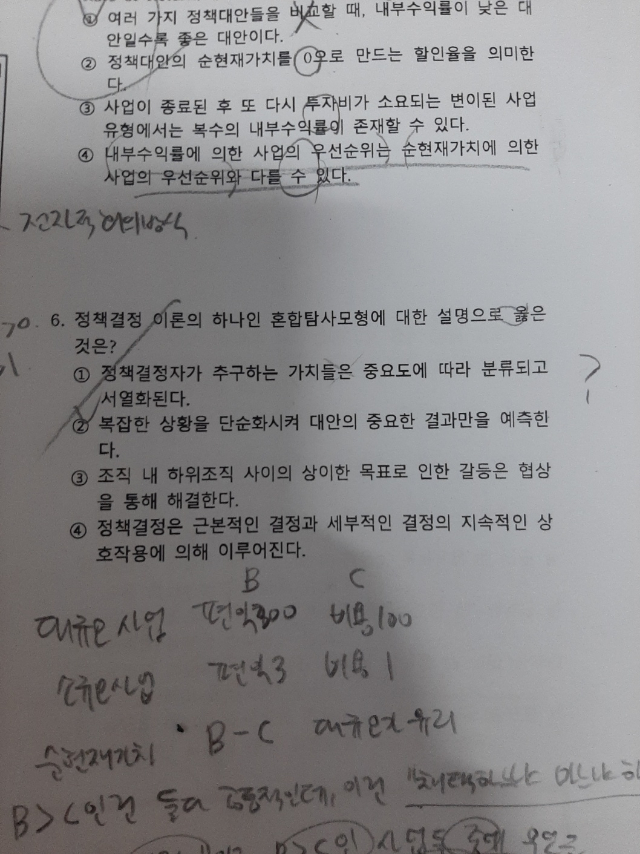 ① 여러 가지 정책대안들을 비교할 때, 내부수익률이 낮은 대
안일수록 좋은 대안이다.
② 정책대안의 순현재가치를 0으로 만드는 할인율을 의미한
다.
③ 사업이 종료된 후 또 다시 투자비가 소요되는 변이된 사업
유형에서는 복수의 내부수익률이 존재할 수 있다.
④ 내부수익률에 의한 사업의 우선순위는 순현재가치에 의한
사업의 우선순위와 다를 수 있다.
6. 정책결정 이론의 하나인 혼합탐사모형에 대한 설명으로 옳은
것은?
① 정책결정자가 추구하는 가치들은 중요도에 따라 분류되고
서열화된다.
② 복잡한 상황을 단순화시켜 대안의 중요한 결과만을 예측한
다.
③ 조직 내 하위조직 사이의 상이한 목표로 인한 갈등은 협상
을 통해 해결한다.
④ 정책결정은 근본적인 결정과 세부적인 결정의 지속적인 상
호작용에 의해 이루어진다.
B C
대규모사업 편익300 비용100
소규모사업 편익3 비용1
순현재가치 B-C 대규모가 유리
B>C인건 둘다 공통적인데, 이건
B>C인 사업들